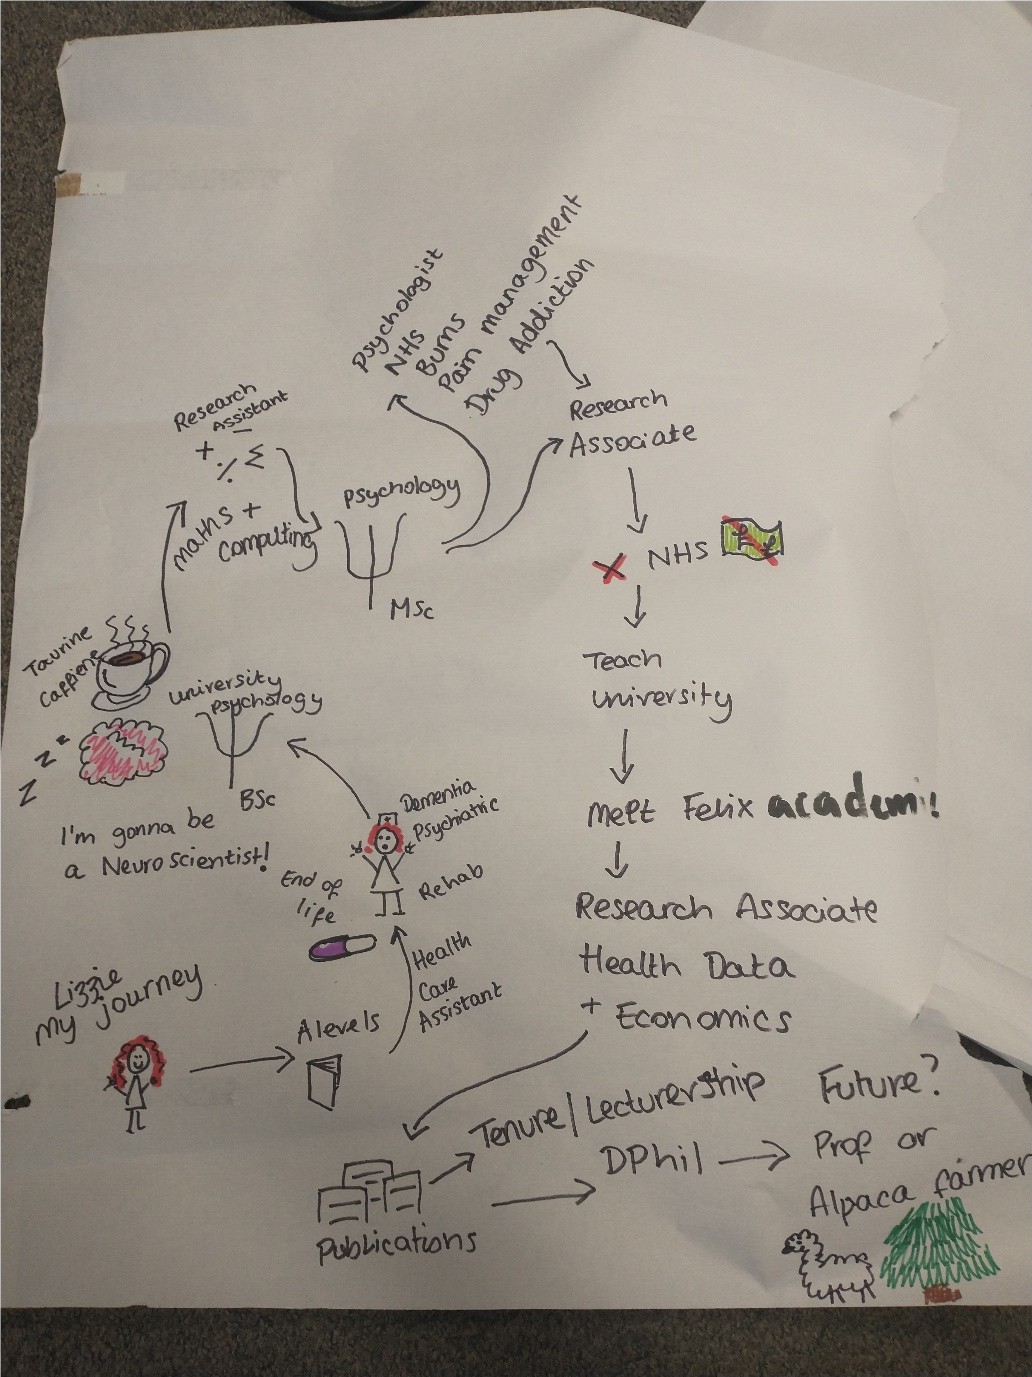 Lizzie
my journey
A levels
Health
Care
Assistant
End of
life
Rehab
Dementia
Psychiatric
University
psychology
BSc
I'm gonna be
a Neuroscientist!
z z z
Taurine
Caffiene
Research
Assistant
+ - ⁒ Σ
maths +
computing
psychology
MSc
psychologist
NHS
Burns
Pain management
Drug Addiction
Research
Associate
X NHS £ £
Teach
university
Melt Felix academi!
Research Associate
Health Data
+ Economics
Publications
Tenure/Lecturership
DPhil
Future?
Prof or
Alpaca farmer